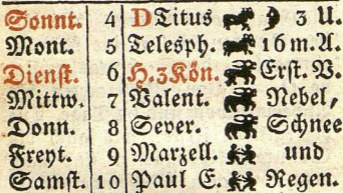 Sonnt. 4 D Titus 3 U.
Mont. 5 Telesph. 16 m. A.
Dienst. 6 H. 3 Kön. Erst. V.
Mittw. 7 Valent. Nebel,
Donn. 8 Sever. Schnee
Freyt. 9 Marzell. und
Samst. 10 Paul E. Regen.